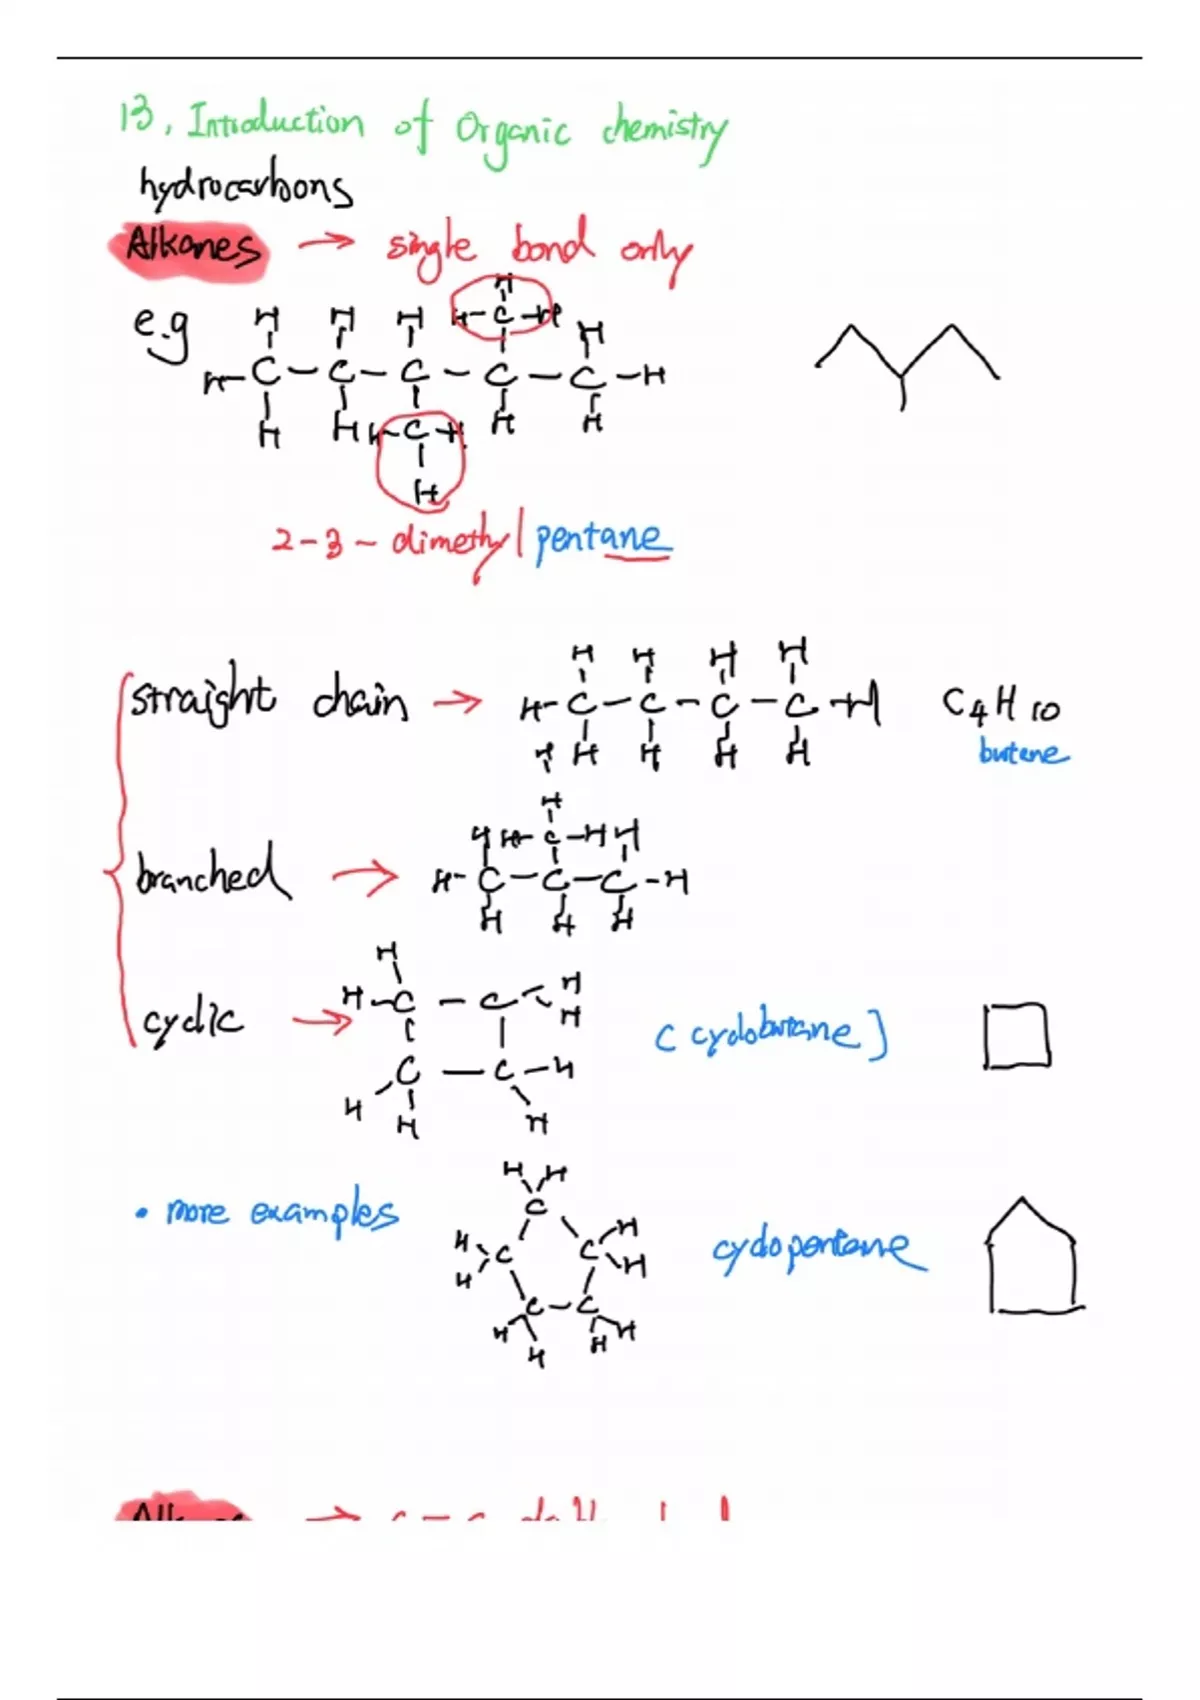 13, Introduction of Organic chemistry
hydrocarbons
Alkanes → single bond only
e.g
H H H H-C-H H
H-C-C-C-C-C-H
H H H-C-H H H
H
2-3-dimethylpentane
straight chain → H H H H
H-C-C-C-C-H C4H10
H H H H butane
H
H H-C-H H
branched → H-C-C-C-H
H H H
H
H-C-C-H
H
cyclic → (cyclobutane]
C-C-H
H H H
• more examples cyclopentane
H H
C
H C C H
H H
C-C
H H H H